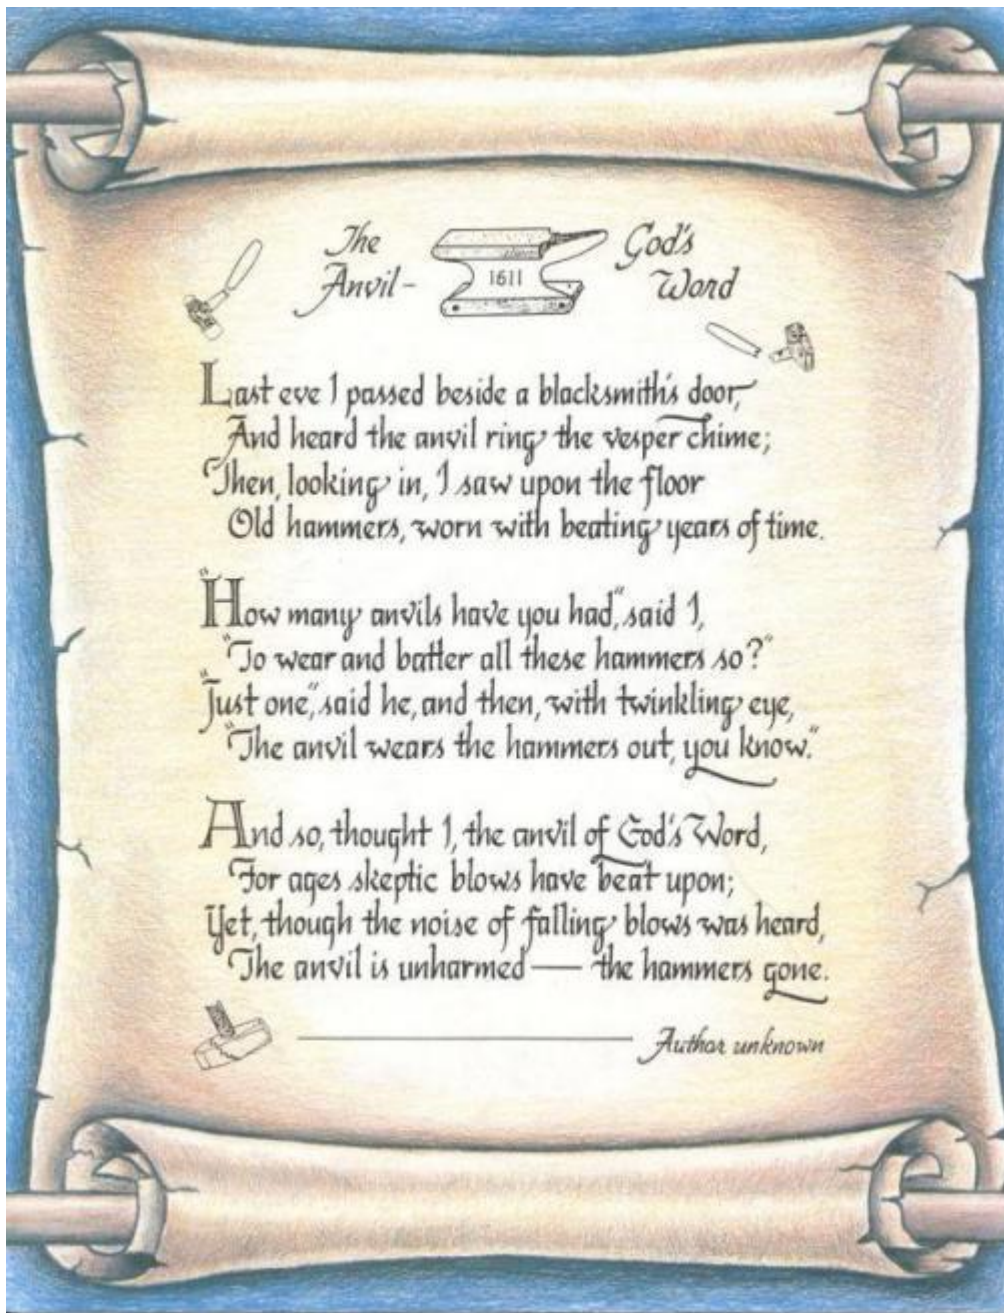 The Anvil – God's Word
1611
Last eve I passed beside a blacksmith's door,
And heard the anvil ring the vesper chime;
Then, looking in, I saw upon the floor
Old hammers, worn with beating years of time.
"How many anvils have you had," said I,
"To wear and batter all these hammers so?"
"Just one," said he, and then, with twinkling eye,
"The anvil wears the hammers out, you know."
And so, thought I, the anvil of God's Word,
For ages skeptic blows have beat upon;
Yet, though the noise of falling blows was heard,
The anvil is unharmed — the hammers gone.
Author unknown